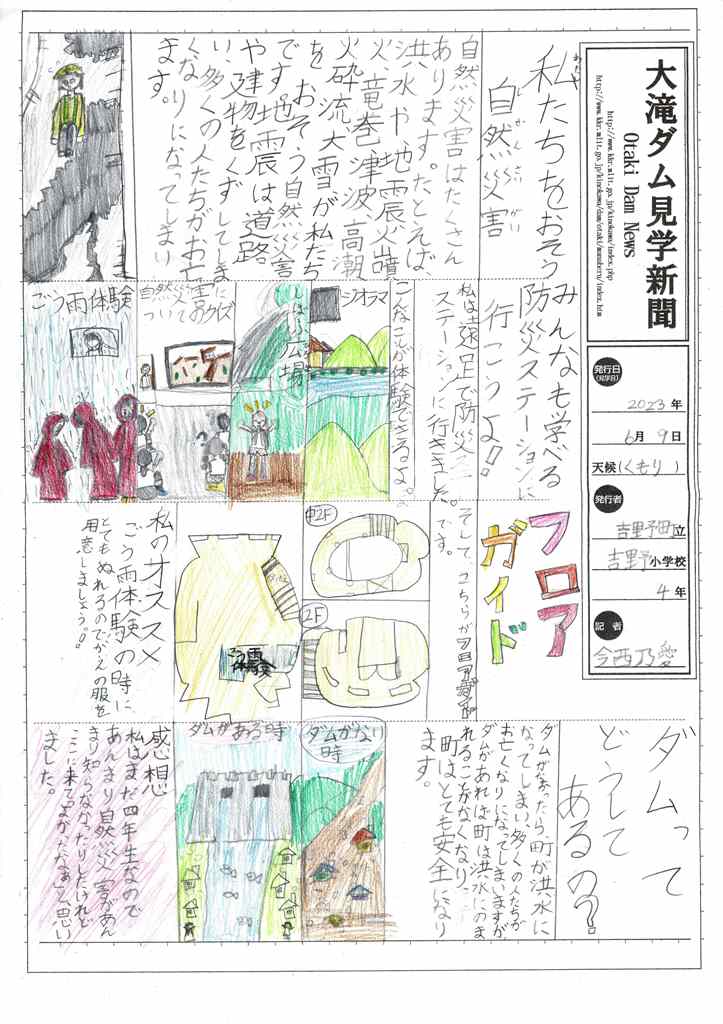 大滝ダム見学新聞
Otaki Dam News
http://www.kkr.mlit.go.jp/kinokawa/index.php
発行日
(見学日)
2023年
6月9日
天候(くもり)
発行者
吉野町立
吉野小学校
4年
記者
今西乃愛
私たちをおそう
自然災害
自然災害はたくさん
あります。たとえば
洪水や地震火山噴
火、竜巻、津波、高潮、
火砕流、大雪が私たち
をおそう自然災害
です。地震は道路
や建物をくずしてしま
い、多くの人たちがお亡
くなりになってしまい
ます。
みんなも学べる
防災ステーションに
行こうよ!!
私は遠足で防災
ステーションに行きました。
こんなことが体験できるよ。
ジオラマ
しばふ広場
自然災害に
ついてのクイズ
ごう雨体験
フロア
ガイド
そして、こちらがフロアガイド
です。
中2F
2F
ごう雨
体験
私のオススメ
ごう雨体験の時に
とてもぬれるのでかえの服を
用意しましょう!!
ダムって
どうして
あるの?
ダムがなかったら、町が洪水に
なってしまい、多くの人たちが
お亡くなりになってしまいますが、
ダムがあれば町は洪水にのま
れることがなくなり、
町はとても安全になり
ます。
ダムがない
時
ダムがある時
感想
私はまだ四年生なので
あんまり自然災害があん
まり知らなかったりしたけれど
ここに来てよかったなぁと思い
ました。